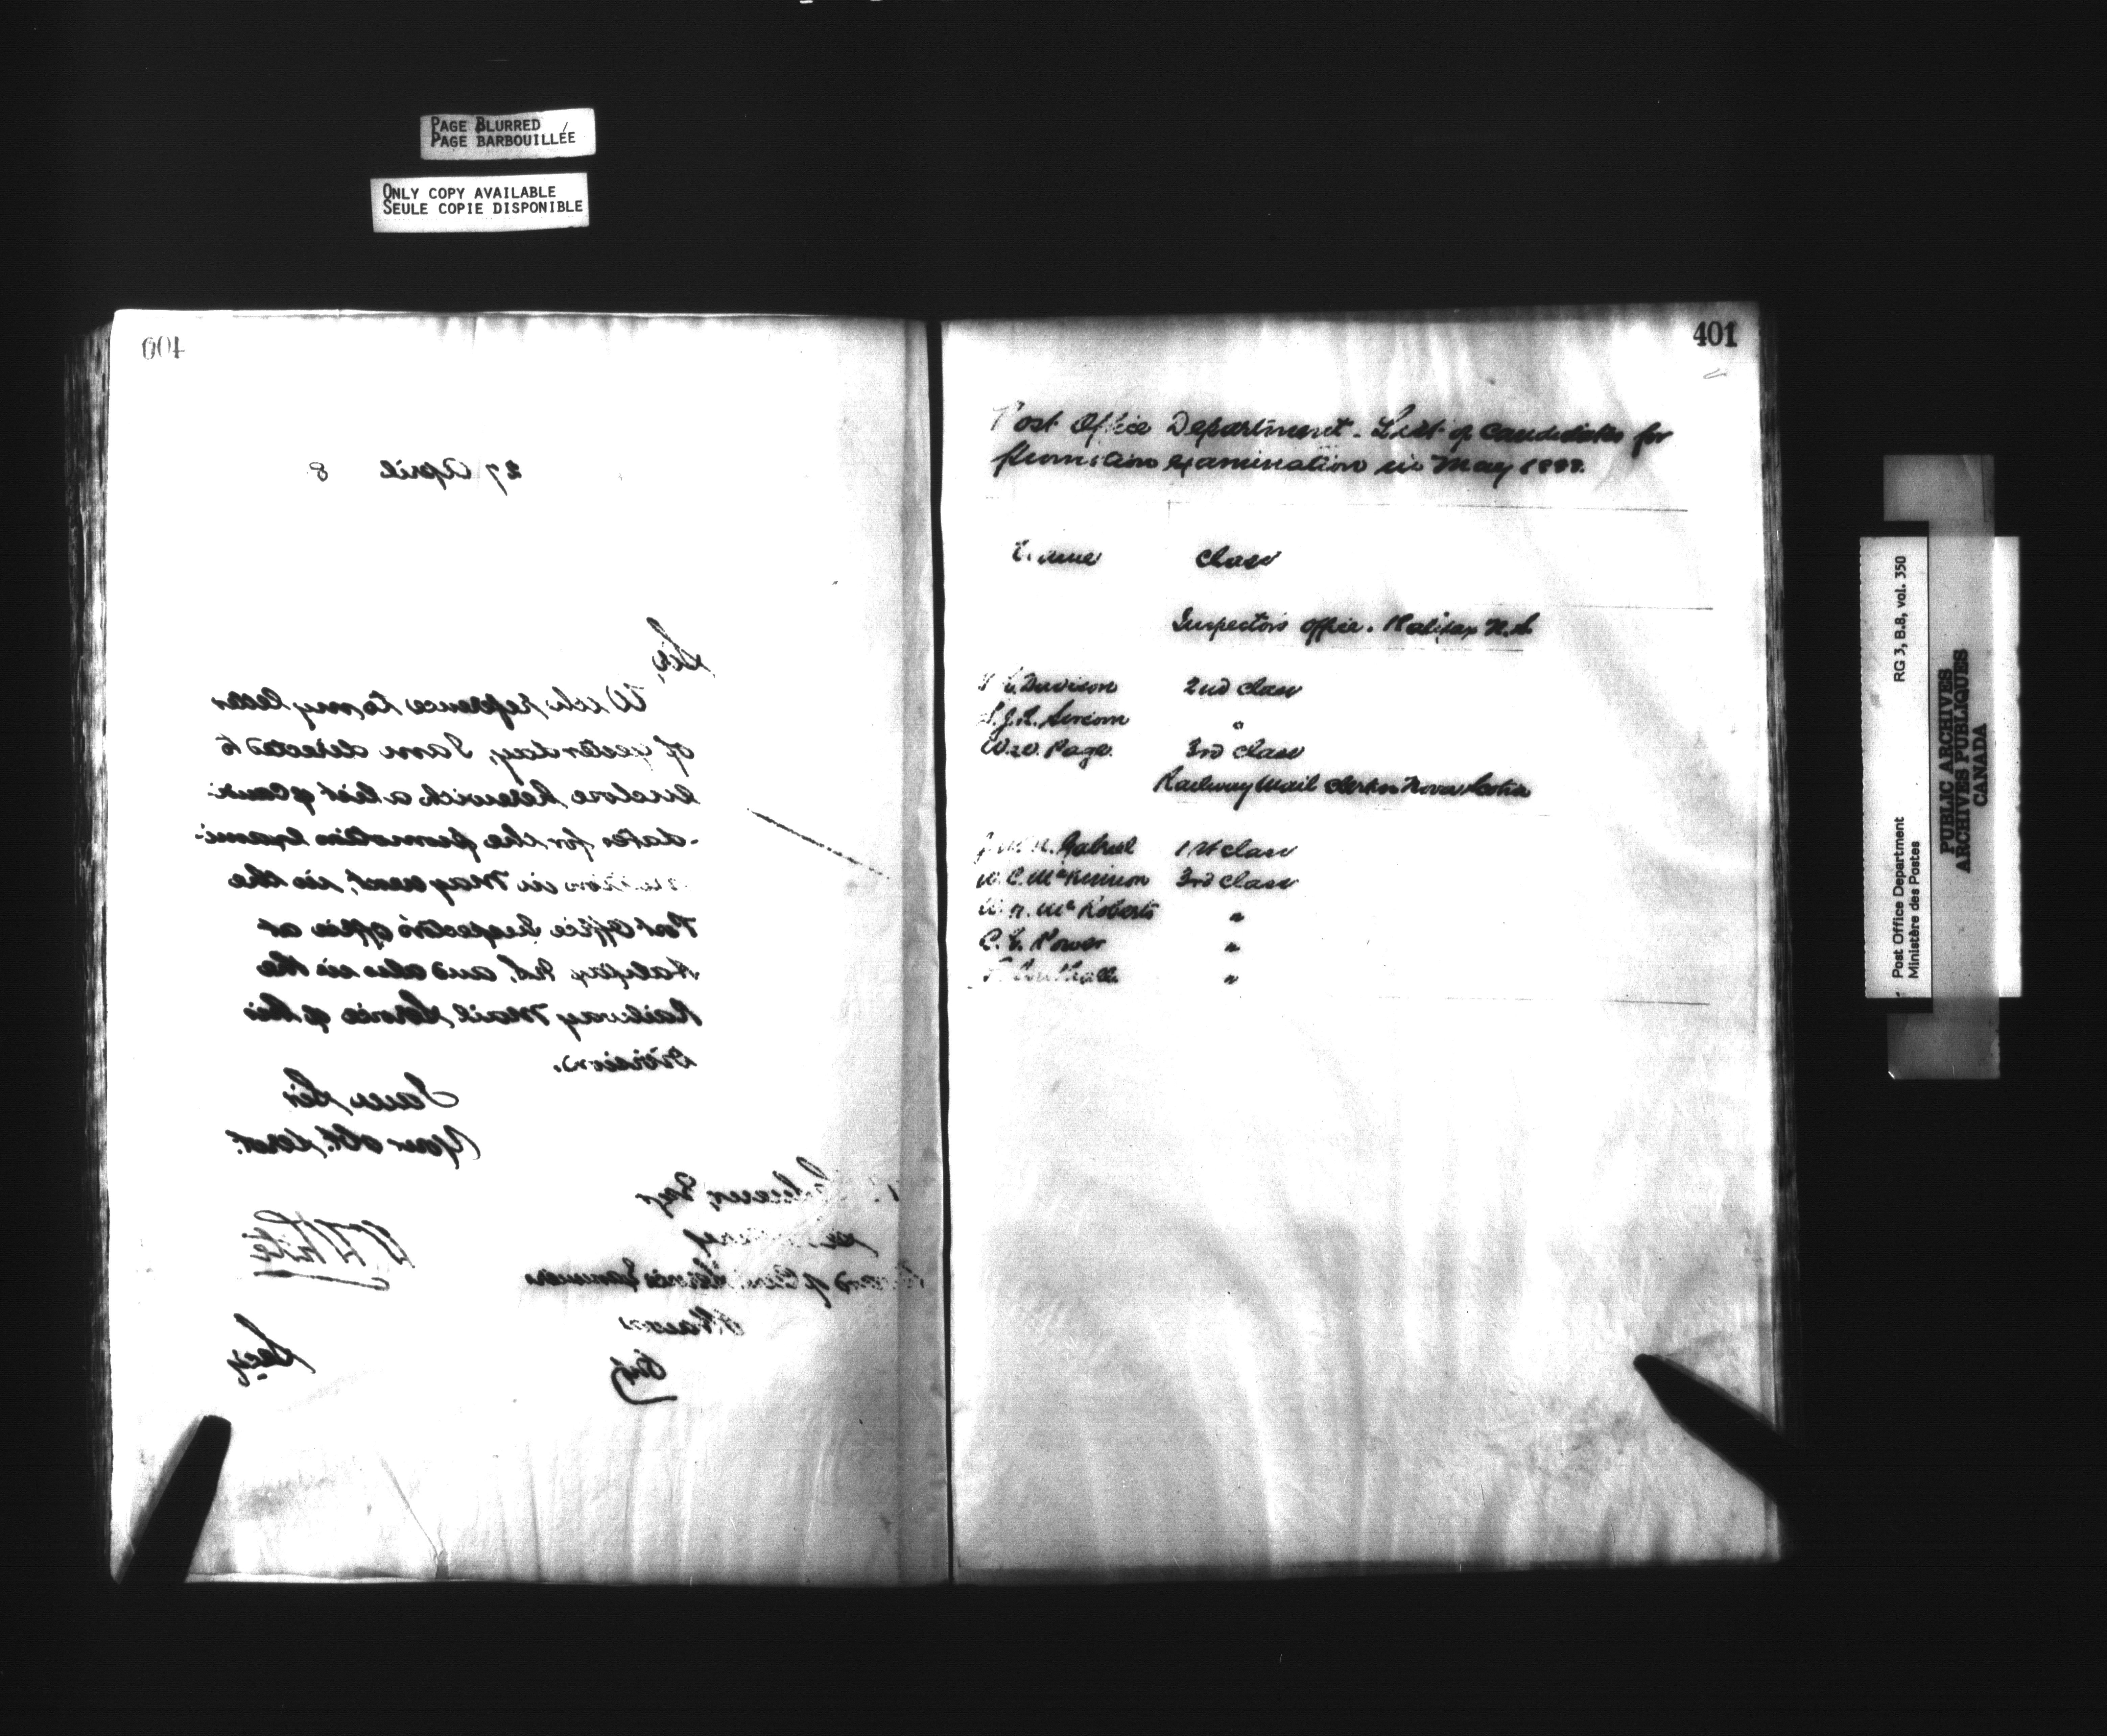 PAGE BLURRED
PAGE BARBOUILLÉE
ONLY COPY AVAILABLE
SEULE COPIE DISPONIBLE
400
27 April 8
Sir,
With reference to my letter
of yesterday, I am directed to
enclose herewith a list of Candi-
-dates for the promotion Exami-
nation in May next, in the
Post Office Inspector's Office at
Halifax N.S. and also in the
Railway Mail Service of his
Division.
I am Sir
Your obt. Servt.
Esqr
W White
of Civil Service Examiners
Ottawa
Secy
401
Post Office Department - List of Candidates for
promotion examination in May 1888.
Name Class
Inspectors Office. Halifax N.S.
Davison 2nd Class
S.J.R. Sircom "
W.W. Page 3rd Class
Railway Mail Clerks Nova Scotia
Gabriel 1st Class
W.C. McKinnon 3rd Class
McRoberts "
C.E. Power "
"
Post Office Department RG 3, B.8, vol. 350
Ministère des Postes
PUBLIC ARCHIVES
ARCHIVES PUBLIQUES
CANADA